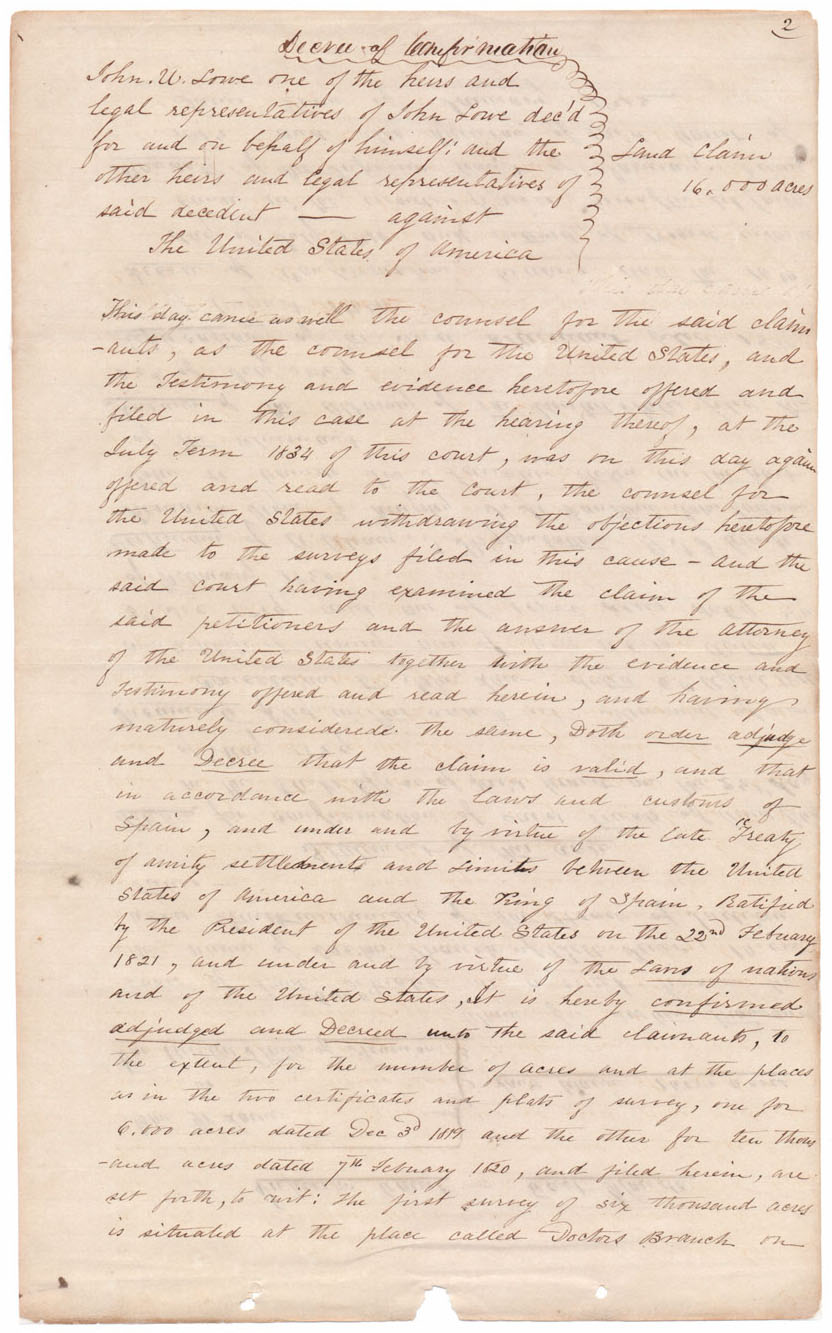 2
Decree of Confirmation
John. W. Lowe one of the heirs and
legal representatives of John Lowe dec'd
for and on behalf of himself; and the
other heirs and legal representatives of
said decedent — against
The United States of America
Land Claim
16.000 acres
This day came as well the counsel for the said claim
-ants, as the counsel for the United States, and
the Testimony and evidence heretofore offered and
filed in this case at the hearing thereof, at the
July Term 1834 of this court, was on this day again
offered and read to the Court, the counsel for
the United States withdrawing the objections heretofore
made to the surveys filed in this cause - and the
said court having examined the claim of the
said petitioners and the answer of the Attorney
of the United States together with the evidence and
Testimony offered and read herein, and having
maturely considered the same, Doth order adjudge
and Decree that the claim is valid, and that
in accordance with the laws and customs of
Spain, and under and by virtue of the late "Treaty
of amity settlements and Limits between the United
States of America and the King of Spain, Ratified
by the President of the United States on the 22nd Febuary
1821, and under and by virtue of the Laws of nations
and of the United States, It is hereby confirmed
adjudged and Decreed unto the said claimants, to
the extent, for the number of acres and at the places
as in the two certificates and plats of survey, one for
6.000 acres dated Dec 3d 1819 and the other for ten thous
-and acres dated 7th Febuary 1820, and filed herein, are
set forth, to wit: the first survey of six thousand acres
is situated at the place called Doctors Branch on